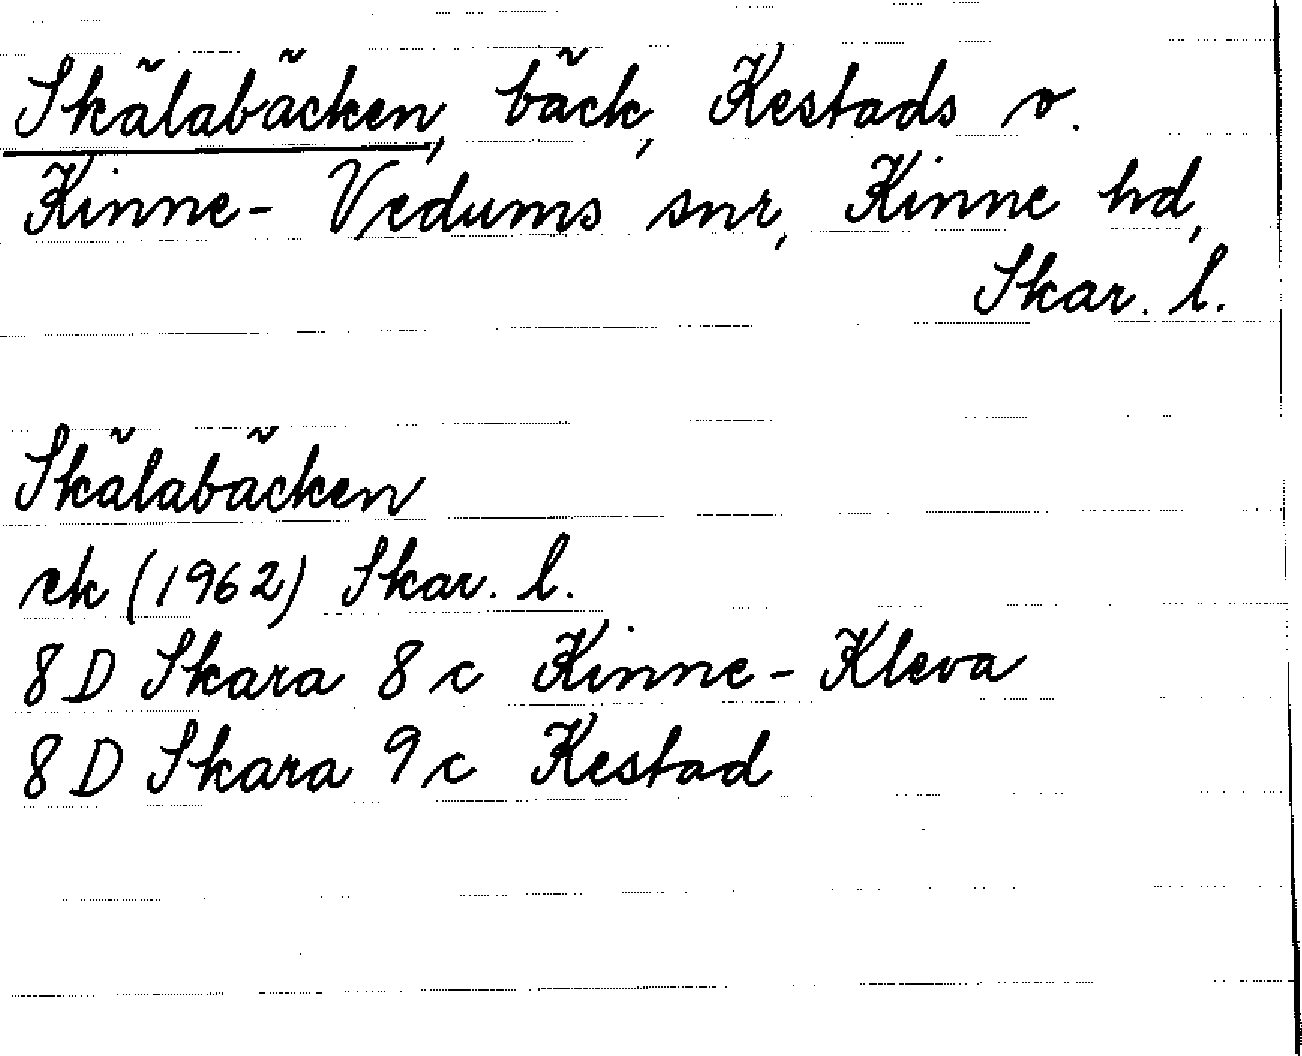 Skälabäcken, bäck, Kestads o.
Kinne-Vedums snr, Kinne hd,
Skar. l.
Skälabäcken
ek (1962) Skar. l.
8 D Skara 8 c Kinne-Kleva
8 D Skara 9 c Kestad